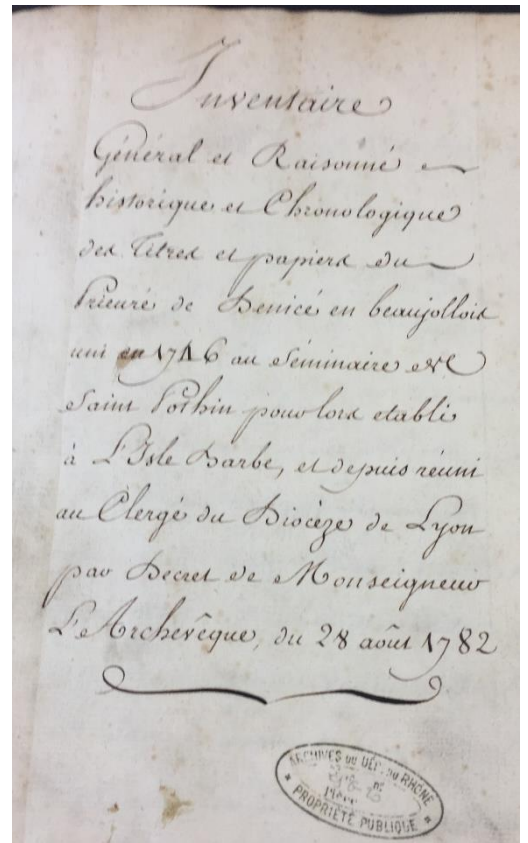 Inventaire
Général et Raisonné
historique et Chronologique
des Titres et papiers du
Prieuré de Denicé en beaujollois
uni en 1746 au Séminaire de
Saint Pothin pour lors etabli
à L'Isle Barbe, et depuis réuni
au Clergé du Diocèze de Lyon
par Decret de Monseigneur
L'Archevêque, du 28 août 1782
ARCHIVES DU DÉP. DU RHÔNE
PROPRIÉTÉ PUBLIQUE